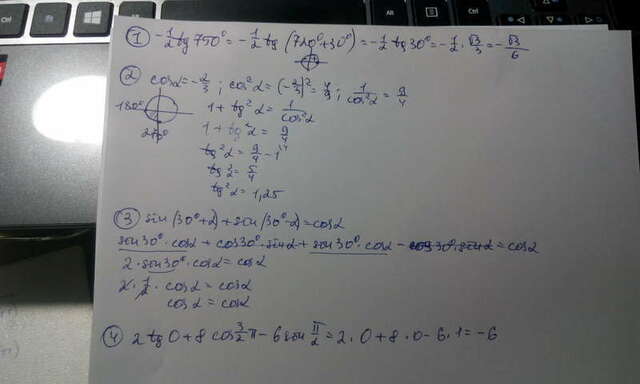 ① -1/2 tg 750° = -1/2 tg (720° + 30°) = -1/2 tg 30° = -1/2 · √3/3 = -√3/6
② cosα = -2/3 ; cos²α = (-2/3)² = 4/9 ; 1/cos²α = 9/4
180°
1 + tg²α = 1/cos²α
270°
1 + tg²α = 9/4
tg²α = 9/4 - 1
tg²α = 5/4
tg²α = 1,25
③ sin(30°+α) + sin(30°-α) = cosα
sin30° · cosα + cos30° · sinα + sin30° · cosα - cos30° · sinα = cosα
2 · sin30° · cosα = cosα
2 · 1/2 · cosα = cosα
cosα = cosα
④ 2 tg 0 + 8 cos 3/2 π - 6 sin π/2 = 2 · 0 + 8 · 0 - 6 · 1 = -6